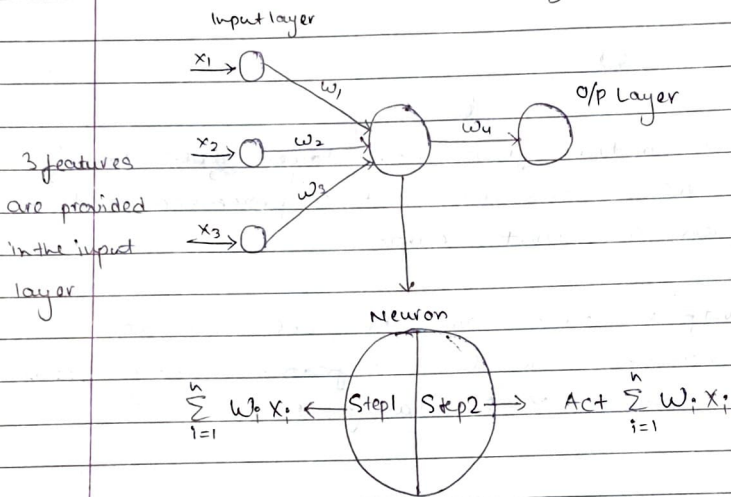 Input layer
x₁
w₁
O/P Layer
x₂
w₂
w₄
3 features
are provided
in the input
layer
w₃
x₃
Neuron
n
∑ Wᵢ Xᵢ
i=1
Step1
Step2
n
Act ∑ Wᵢ Xᵢ
i=1